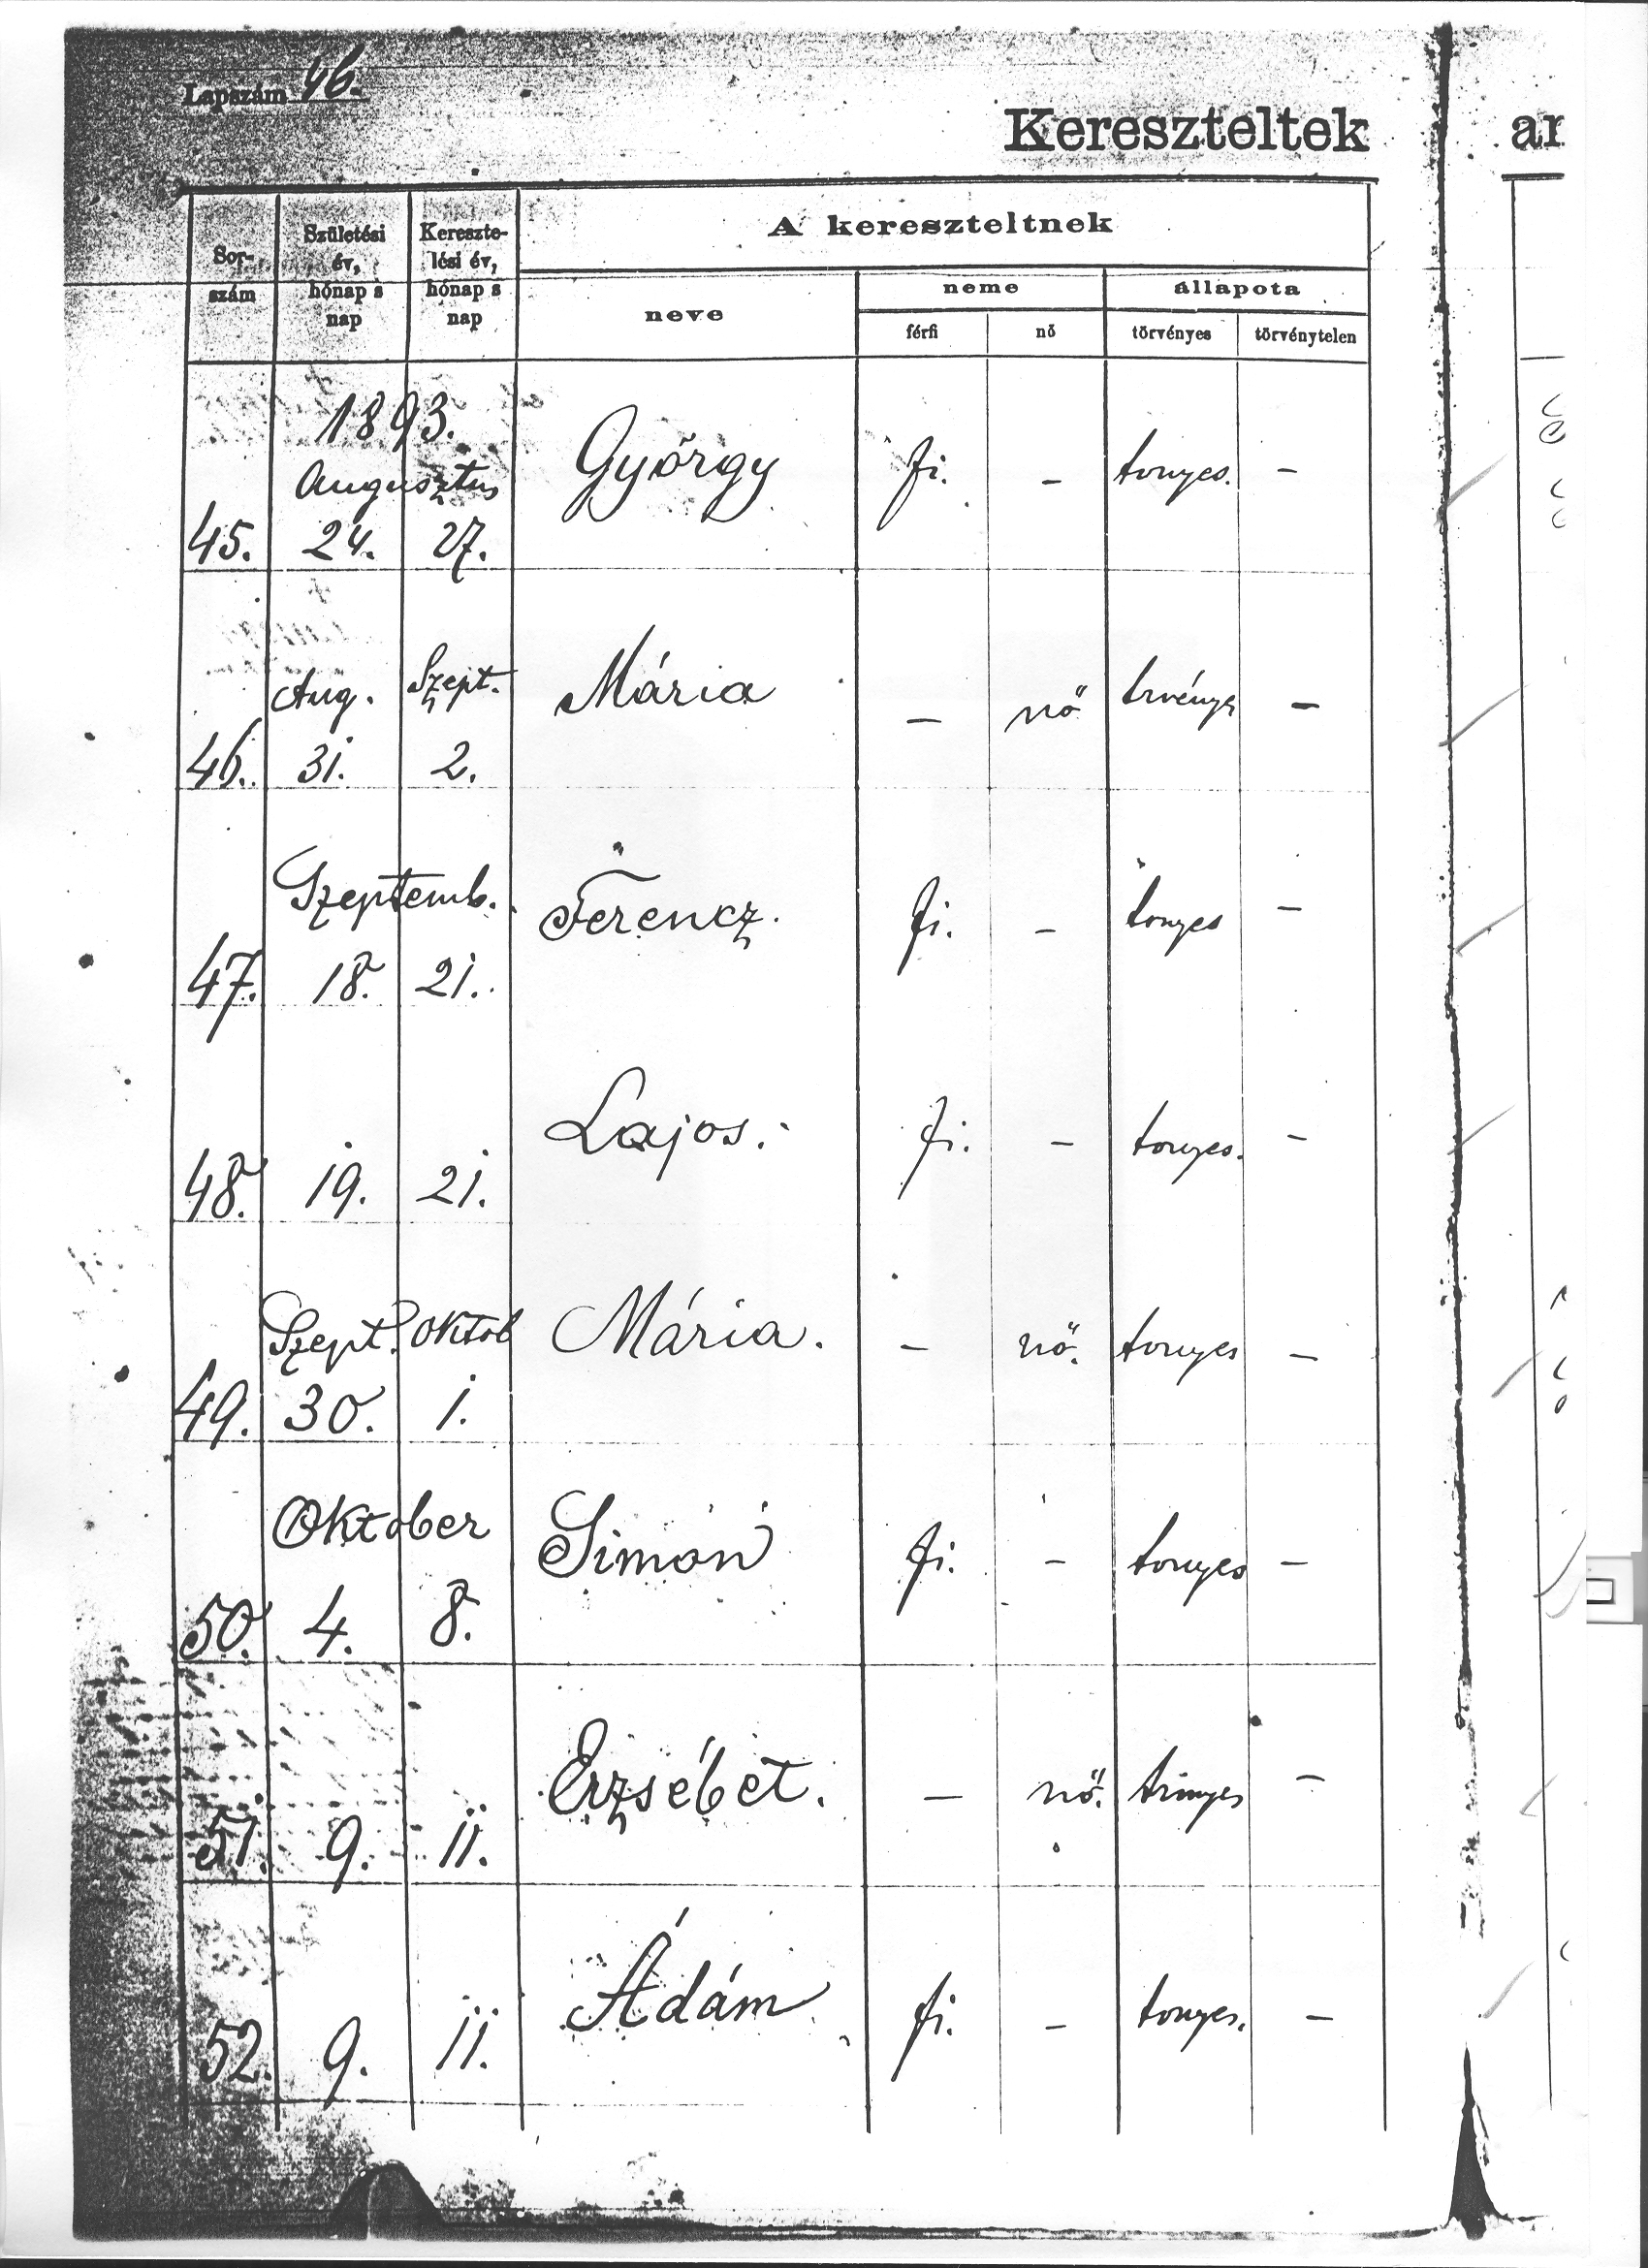 Lapszám 46.
Kereszteltek
an
Sor-
szám
Születési
év,
hónap s
nap
Kereszte-
lési év,
hónap s
nap
A kereszteltnek
neve
neme
állapota
férfi
nő
törvényes
törvénytelen
1893.
Augusztus
45. 24. 27. György fi. – tvnyes. –
Aug. Szept.
46. 31. 2. Mária – nő trvényes –
Szeptemb.
47. 18. 21. Ferencz. fi. – tvnyes –
48. 19. 21. Lajos. fi. – tvnyes. –
Szept. Oktob
49. 30. 1. Mária. – nő. tvnyes –
Oktober
50. 4. 8. Simon fi. – tvnyes –
51. 9. 11. Erzsébet. – nő. trvnyes –
52. 9. 11. Ádám fi. – tvnyes. –